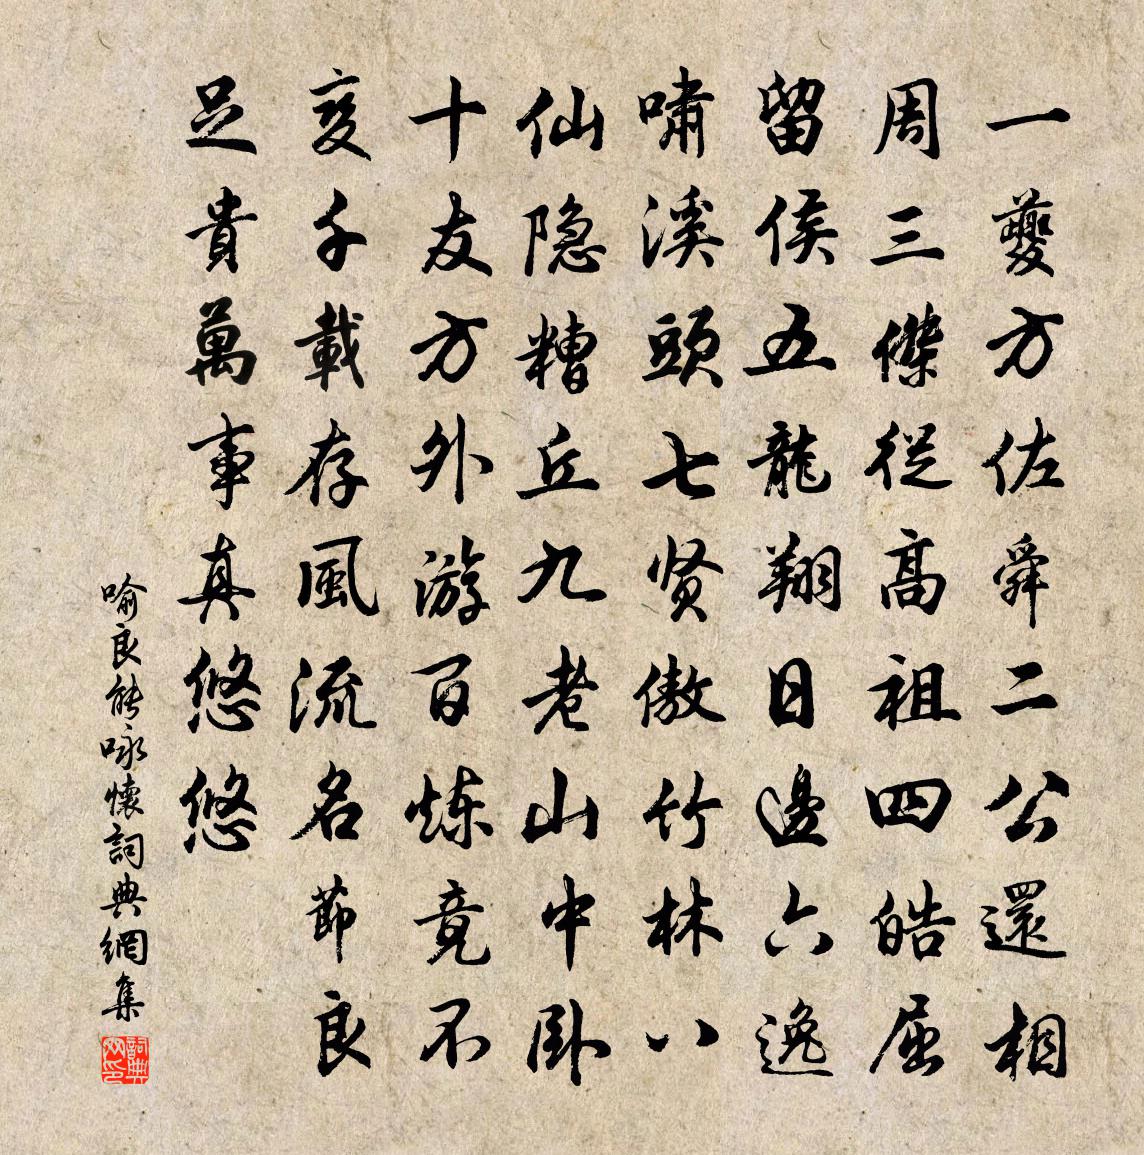 一夔方佐舜二公還相
周三傑從高祖四皓屈
留侯五龍翔日邊六逸
嘯溪頭七贤傲竹林八
仙隐糟丘九老山中卧
十友方外游百炼竟不
变千載存風流名節良
足貴萬事真悠悠
喻良能咏懷詞典網集
詞典网印